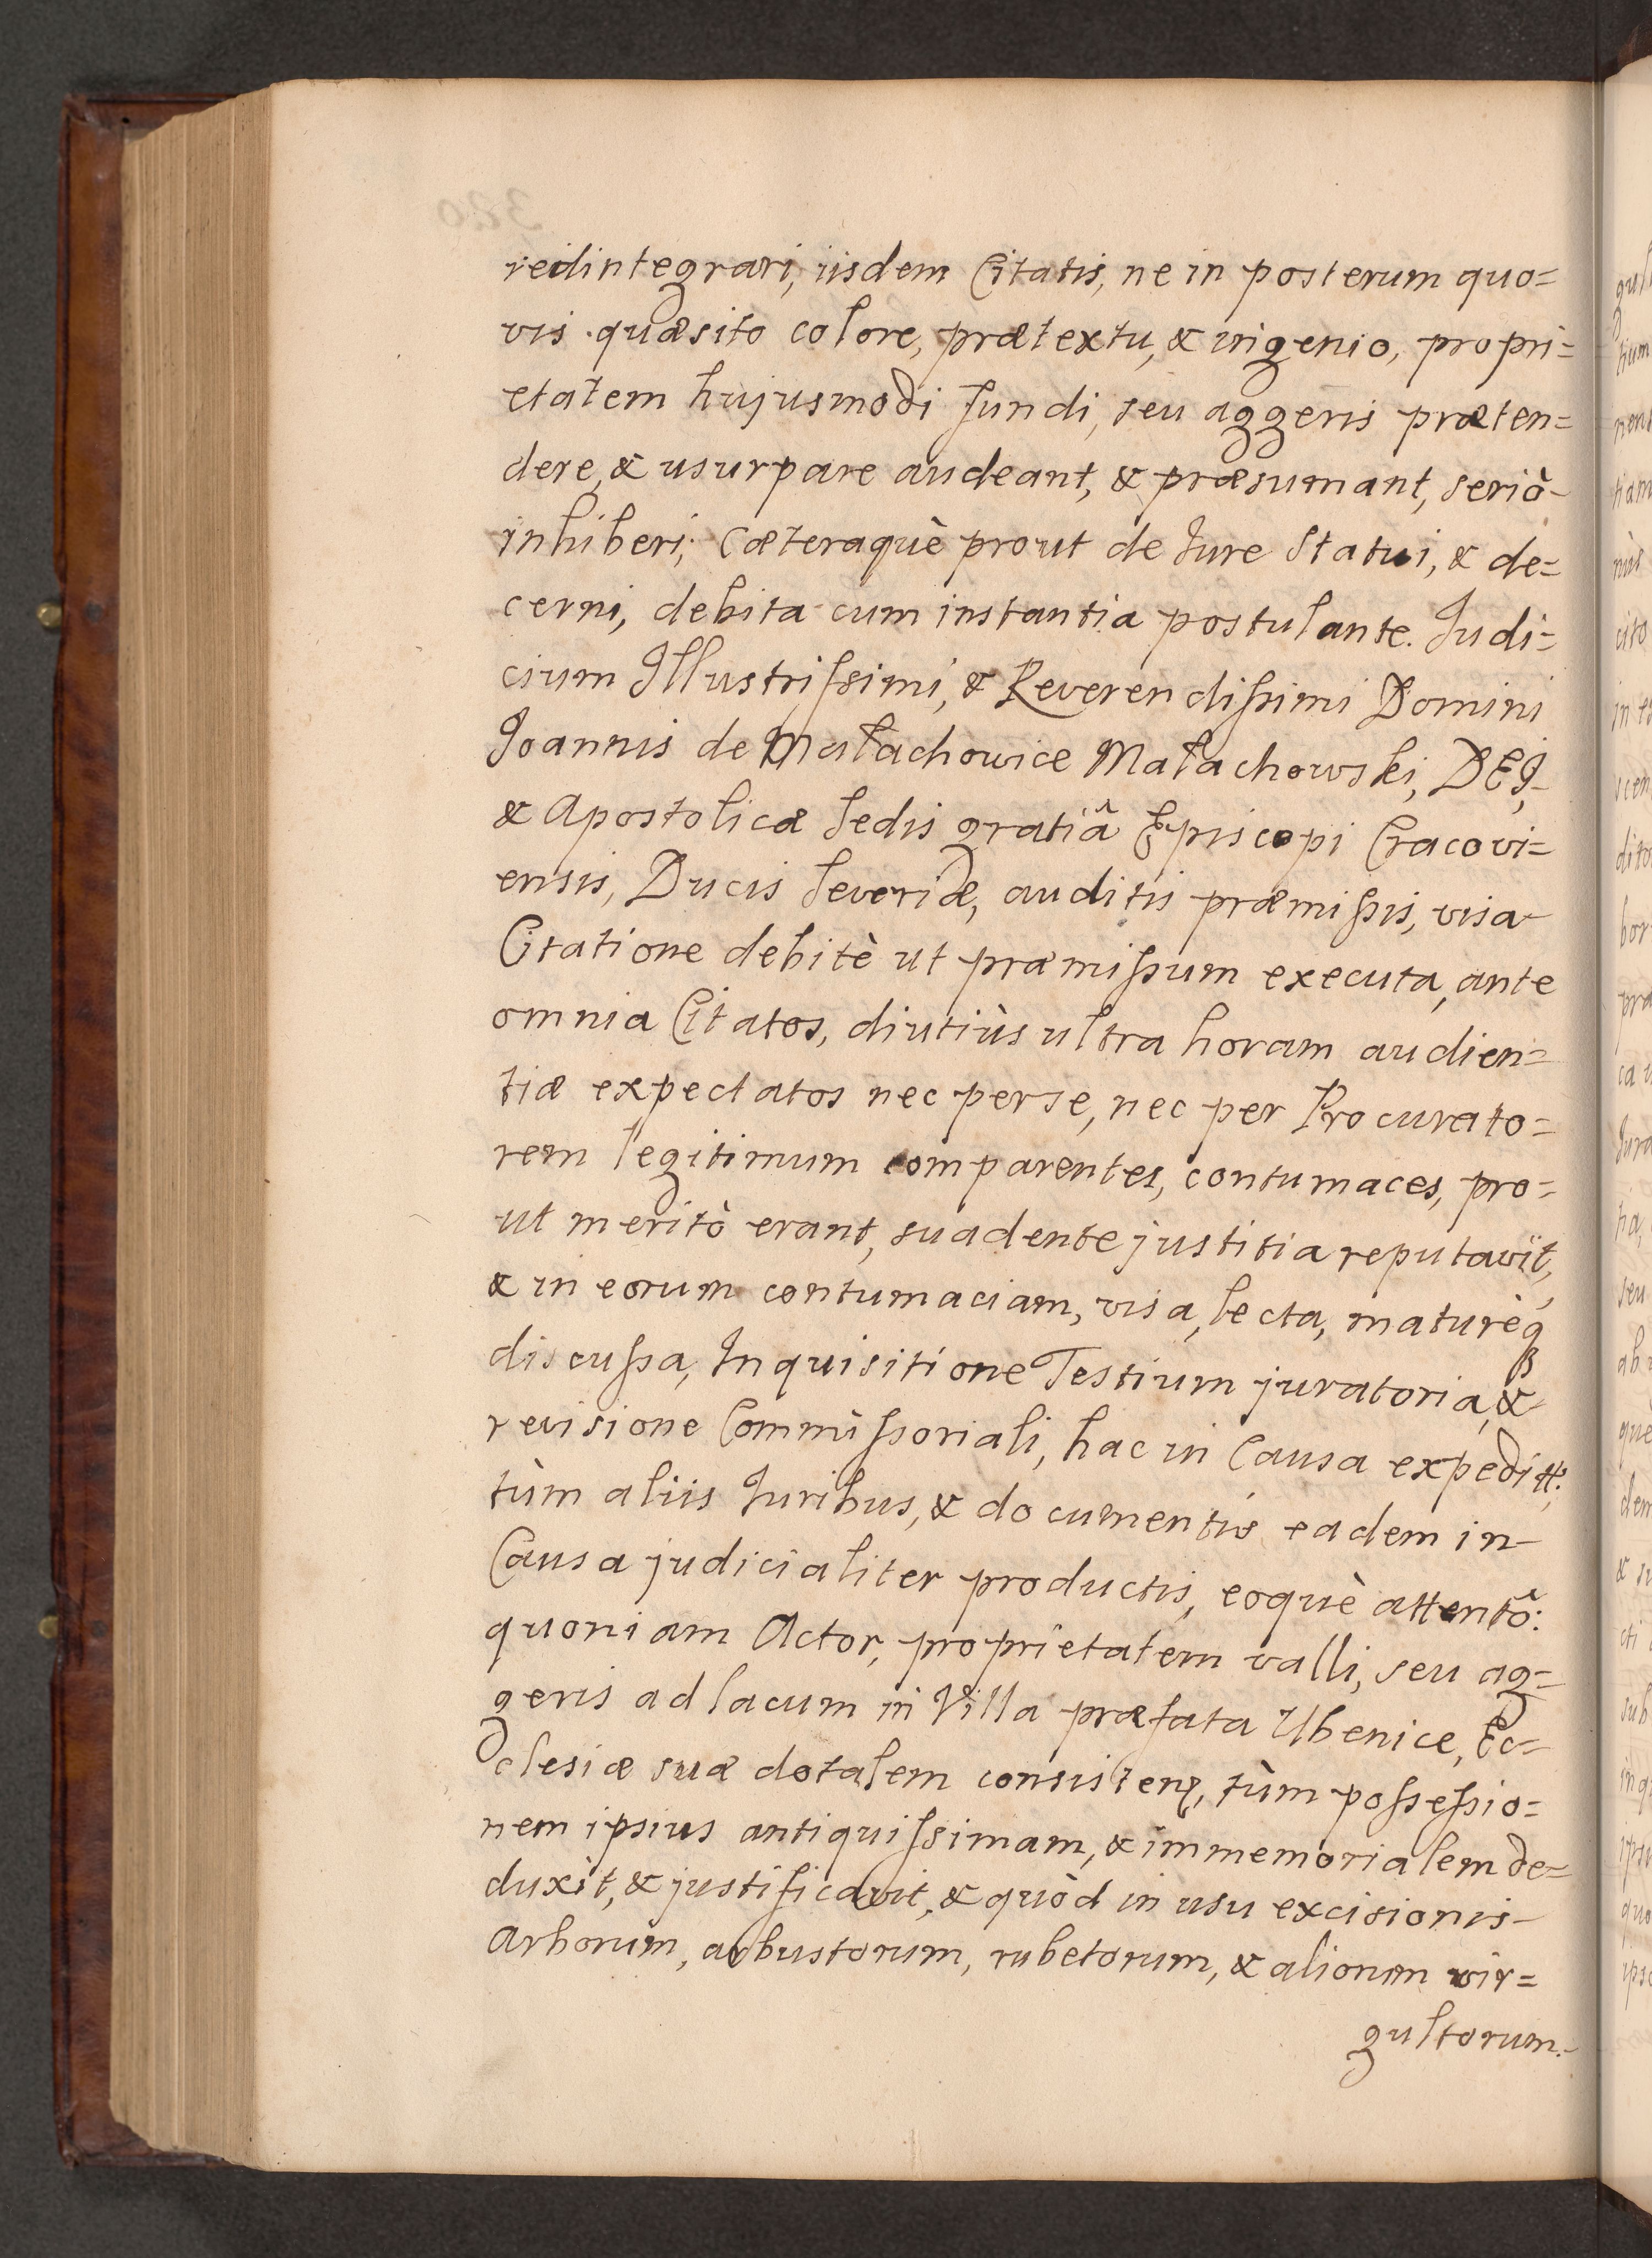 redintegrari, iisdem Citatis, ne in posterum quo=
vis quæsito colore, prætextu, & ingenio, propri=
etatem hujusmodi fundi, seu aggeris præten=
dere, & usurpare audeant, & præsumant, seriò
inhiberi; Cæteraquè prout de Jure Statui, & de=
cerni, debita cum instantia postulante. Judi=
cium Illustrissimi, & Reverendissimi Domini
Joannis de Małachowice Małachowski, DEJ,
& Apostolicæ Sedis gratiâ Episcopi Cracovi=
ensis, Ducis Severiæ, auditis præmissis, visa
Citatione debitè ut præmissum executa, ante
omnia Citatos, diutiùs ultra horam audien=
tiæ expectatos nec per se, nec per Procurato=
rem legitimum comparentes, contumaces, pro=
ut meritò erant, suadente justitia reputavit,
& in eorum contumaciam, visa, lecta, maturèq
discussa, Inquisitione Testium juratoria, &
revisione Commissoriali, hac in Causa expeditt:
tùm aliis Juribus, & documentis eadem in
Causa judicialiter productis, eoquè attentô:
quoniam Actor, proprietatem valli, seu ag=
geris ad lacum in Villa præfata Ubenice, Ec=
clesiæ suæ dotalem consisten, tùm possessio=
nem ipsius antiquissimam, & immemorialem de=
duxit, & justificavit, & quòd in usu excisionis
Arborum, arbustorum, rubetorum, & aliorum vir=
gultorum.